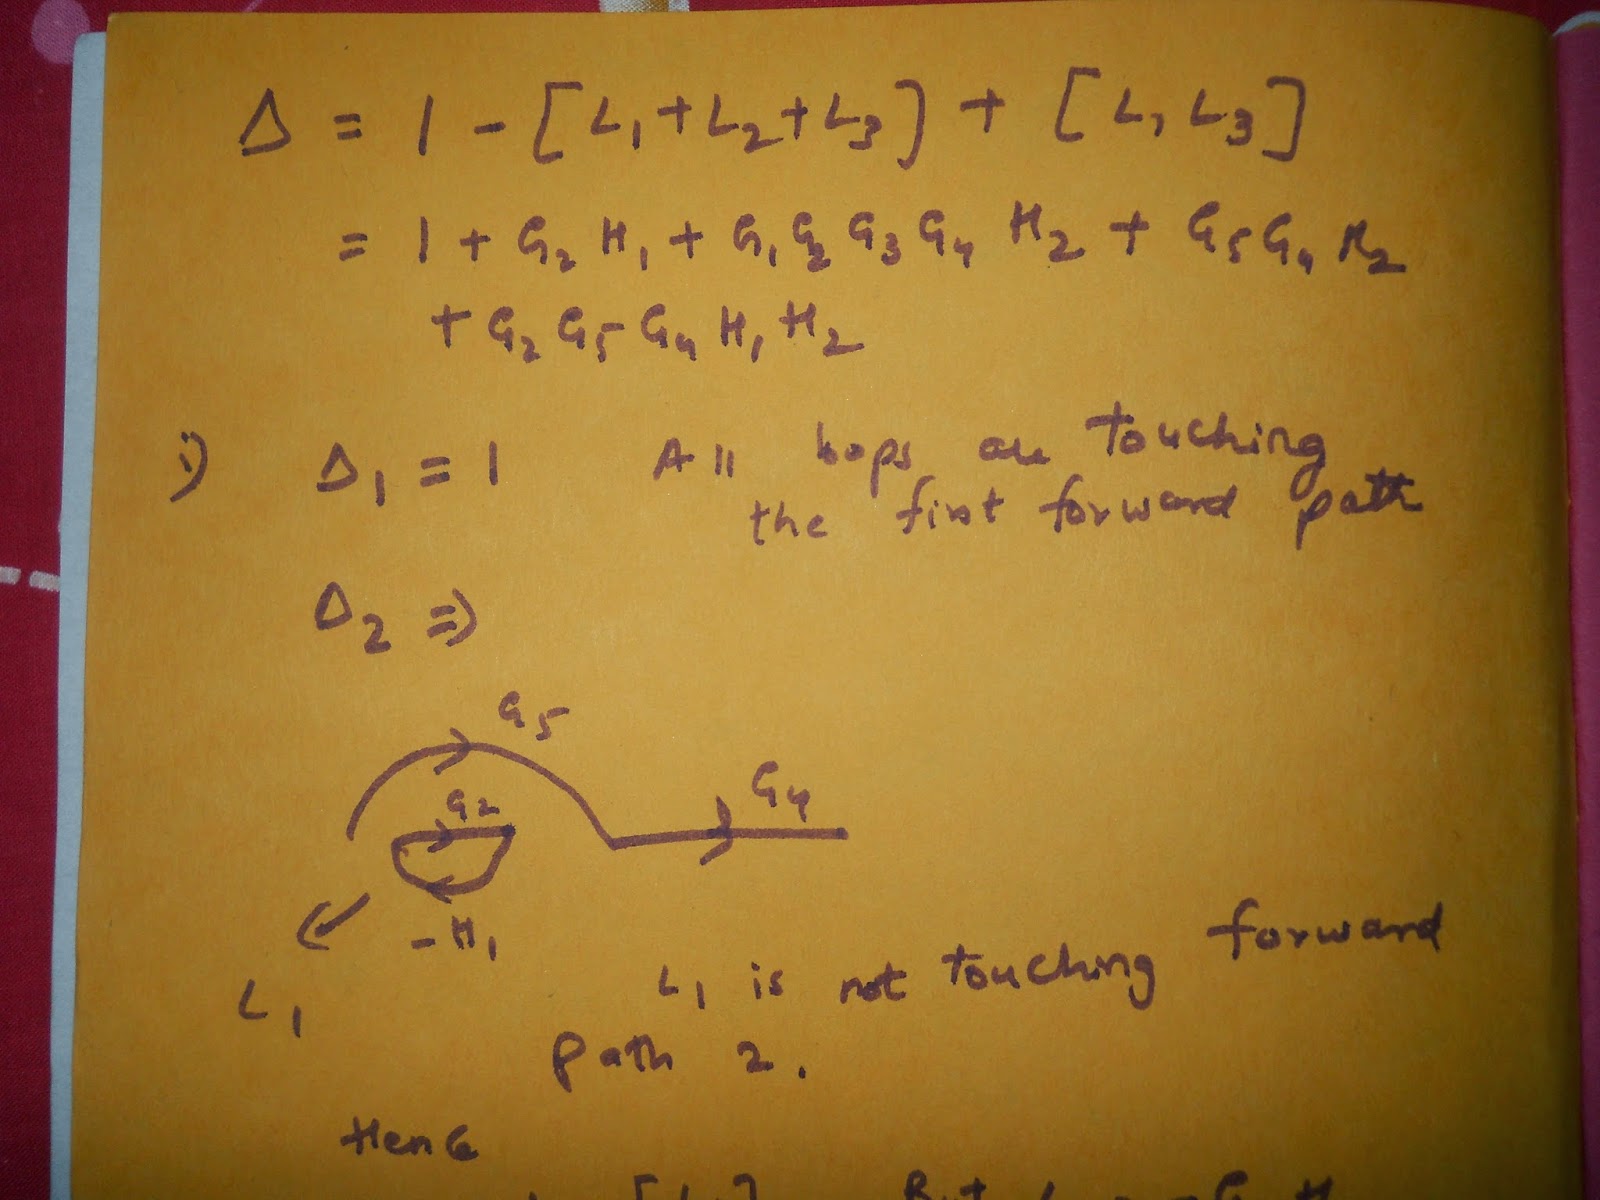 Δ = 1 - [L₁ + L₂ + L₃] + [L₁ L₃]
= 1 + G₂ H₁ + G₁ G₂ G₃ G₄ H₂ + G₅ G₄ H₂
+ G₂ G₅ G₄ H₁ H₂
i) Δ₁ = 1 All loops are touching
the first forward path
Δ₂ ⇒
G₅
G₂
G₄
-H₁
L₁
L₁ is not touching forward
path 2.
Hence